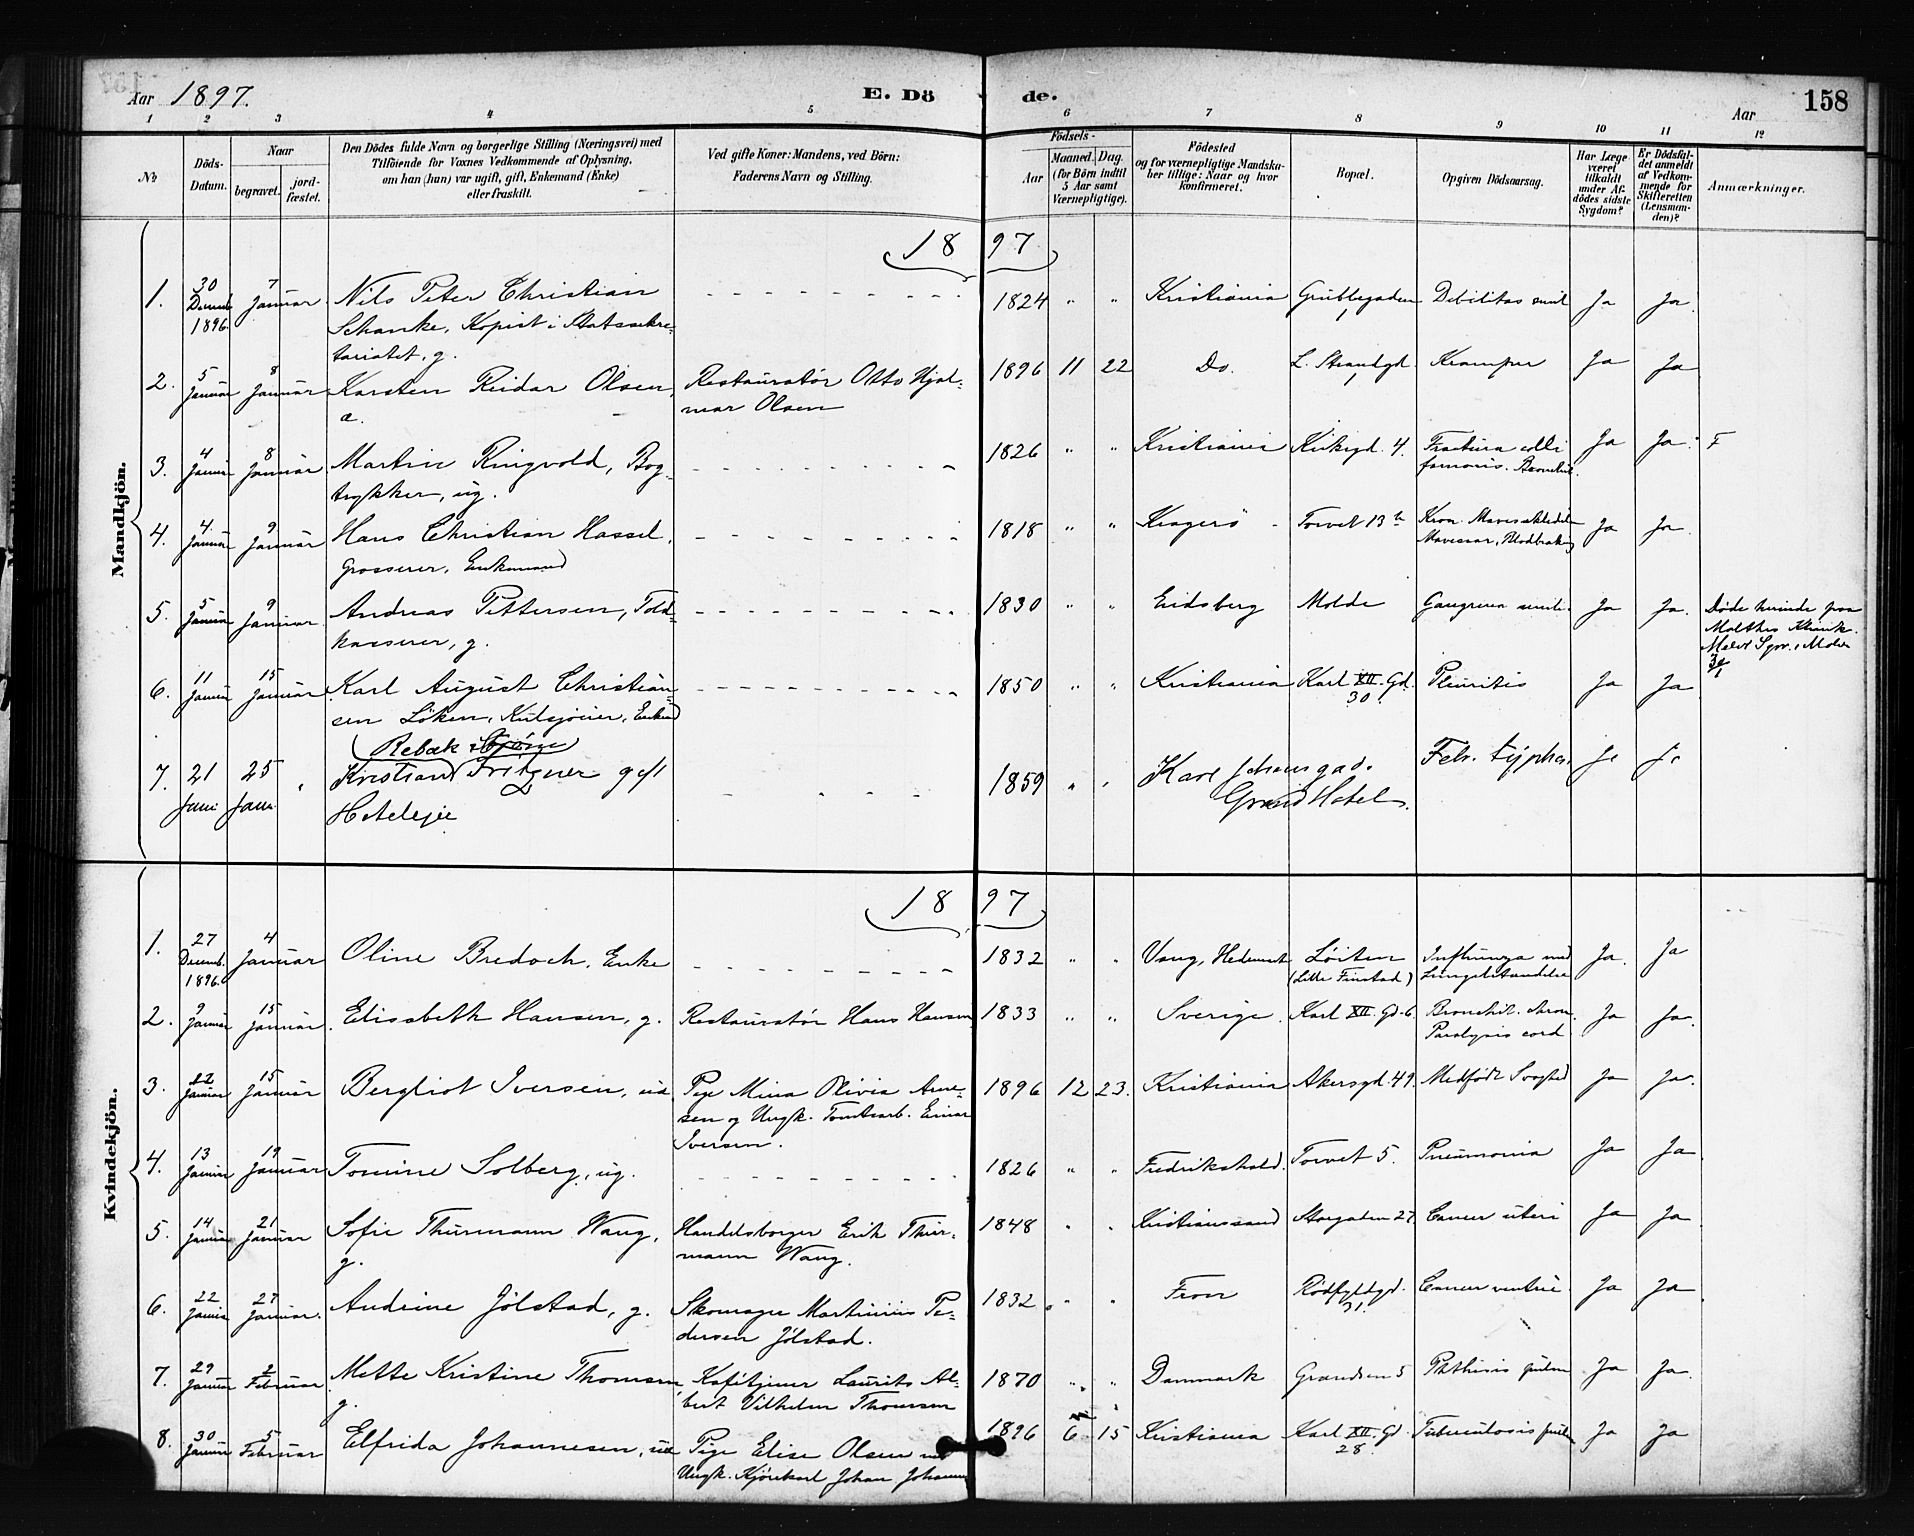 Aar 1897. E. Dö de. Aar 158
1 2 3 4 5 6 7 8 9 10 11 12
№ Döds-Datum. Naar begravet. jord-fæstet. Den Dödes fulde Navn og borgerlige Stilling (Næringsvei) med Tilföiende for Voxnes Vedkommende af Oplysning, om han (hun) var ugift, gift, Enkemand (Enke) eller fraskilt. Ved gifte Koner: Mandens, ved Börn: Faderens Navn og Stilling. Födsels- Aar Maaned. Dag. (for Börn indtil 5 Aar samt Værnepligtige). Födested og for værnepligtige Mandskaber tillige: Naar og hvor konfirmeret. Bopæl. Opgiven Dödsaarsag. Har Læge været tilkaldt under Afdödes sidste Sygdom? Er Dödsfaldet anmeldt af Vedkommende for Skifteretten (Lensmanden)? Anmærkninger.
Mandkjön.
1897
1. 30 Decemb 1896. 7 Januar Nils Peter Christian 1824 " " Kristiania Grubbegaden 1 Debilitas senil Ja Ja.
Schanke, Kopist i Statssekre-
tariatet, g.
2. 5 Januar 8 Januar Karsten Reidar Olsen, Restauratör Otto Hjal- 1896 11 22 Do. L. Strandgd. 1 Kramper Ja Ja
æ. mar Olsen
3. 4 Januar 8 Januar Martin Ringvold, Bog- 1826 " " Kristiania Kirkegd. 4. Fractura colli Ja Ja. F
trykker, ug. femoris.
4. 4. Januar 9 Januar Hans Christian Hassel, 1818 " " Kragerö Torvet 13 b Kron. Ja Ja.
Grosserer, Enkemand Mavesaar, Blodbrækning
5. 5 Januar 9 Januar Andreas Pettersen, Told- 1830 " " Eidsberg Molde Gangrena senile. Ja Ja. Døde herinde paa
kasserer, g. Malthes Klinik.
6. 11 Januar 15 Januar Karl August Christian- 1850 " " Kristiania Karl XII. Gd. 30. Pleuritis Ja Ja
sen Löken, Enkem
(Rebæk i
7. 21 Janu 25 Janu Kristian) Fritzner gift 1859 " " Karl Johansgad. Febr. typhoi Ja Ja
Hoteleje Grand Hotel.
Kvindekjön.
1897
1. 27 Decemb. 1896. 4 Januar Oline Bredoch, Enke 1832 " " Vang, Hedemark Löiten Influenza med Ja. Ja
(Lille Finstad) Lungebetændelse
2. 9 Januar 15 Januar. Elisabeth Hansen, g. Restauratör Hans Hansen 1833 " " Sverige. Karl XII. Gd. 6. Bronchit. chron. Ja Ja.
Paralysis cord.
3. 12 Januar 15 Januar Bergliot Iversen, uæ Pige Mina Olivia Arne- 1896 12 23. Kristiania Akersgd. 49. Medfödt Svaghed Ja Ja.
sen og Ungk. Tomtearb. Einar
Iversen.
4. 13 Januar 19 Januar Tomine Solberg, ug. 1826 " " Fredrikshald. Torvet 5. Pneumonia Ja Ja.
5. 14 Januar 21 Januar Sofie Thurmann Wang, Handelsborger Erik Thur- 1848 " " Kristianssand Storgaden 27. Cancer uteri Ja Ja.
g. mann Wang.
6. 22 Januar 27 Januar. Andrine Jölstad, g. Skomager Martinius Pe- 1832 " " Fron Rödfyldgd. 31. Cancer ventric. Ja Ja
dersen Jölstad.
7. 29 Januar 2 Februar Mette Kristine Thomsen Kafétjener Laurits Al- 1870 " " Danmark Grændsen 5 Phthisis pulm Ja Ja
g. bert Vilhelm Thomsen
8. 30 Januar 5 Februar Elfrida Johannesen, uæ Pige Elise Olsen 1896 6 15 Kristiania Karl XII. Gd. 28. Tuberculosis pulm Ja Ja
Ungk. Kjörekarl Johan